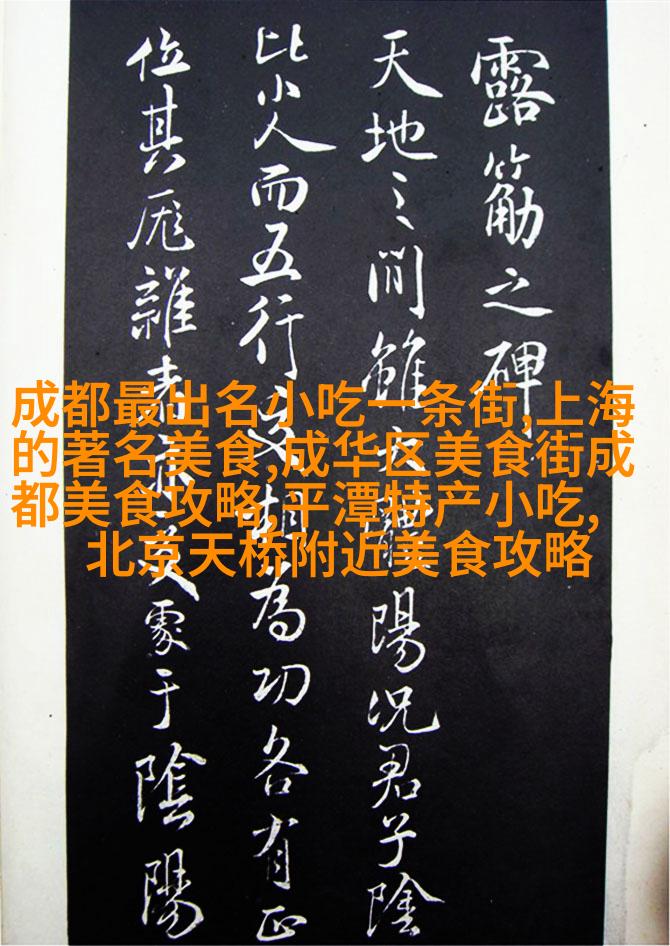 露筋之碑
天地之間雖陽況君子陰
比小人而五行更相為功各有正
位其厖雜于陰陽
成都最出名小吃一条街,上海
的著名美食,成华区美食街成
都美食攻略,平潭特产小吃,
北京天桥附近美食攻略